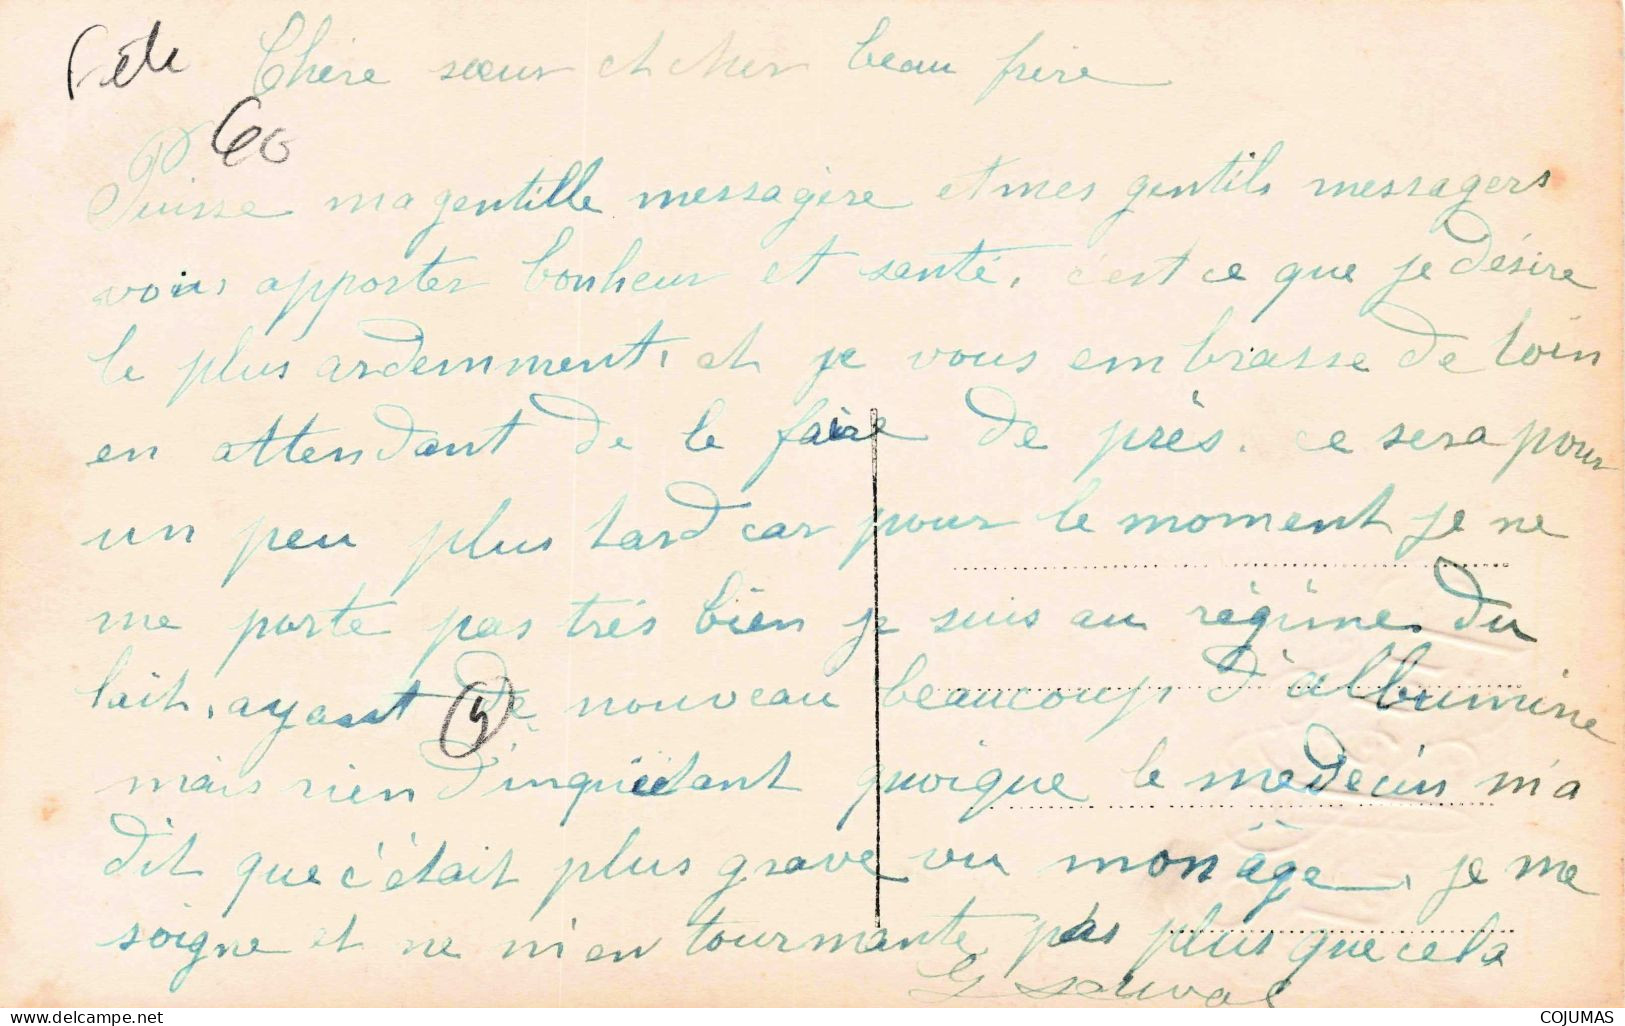 Fête
Chère sœur et cher beau frère
60
Puisse ma gentille messagère et mes gentils messagers
vous apporter bonheur et santé, c'est ce que je désire
le plus ardemment, et je vous embrasse de loin
en attendant de le faire de près. ce sera pour
un peu plus tard car pour le moment je ne
me porte pas très bien je suis au régime du
lait, ayant de nouveau beaucoup d'albumine
mais rien d'inquiétant quoique le medecin m'a
dit que c'était plus grave vu mon âge, je me
soigne et ne m'en tourmante pas plus que cela
COJUMAS